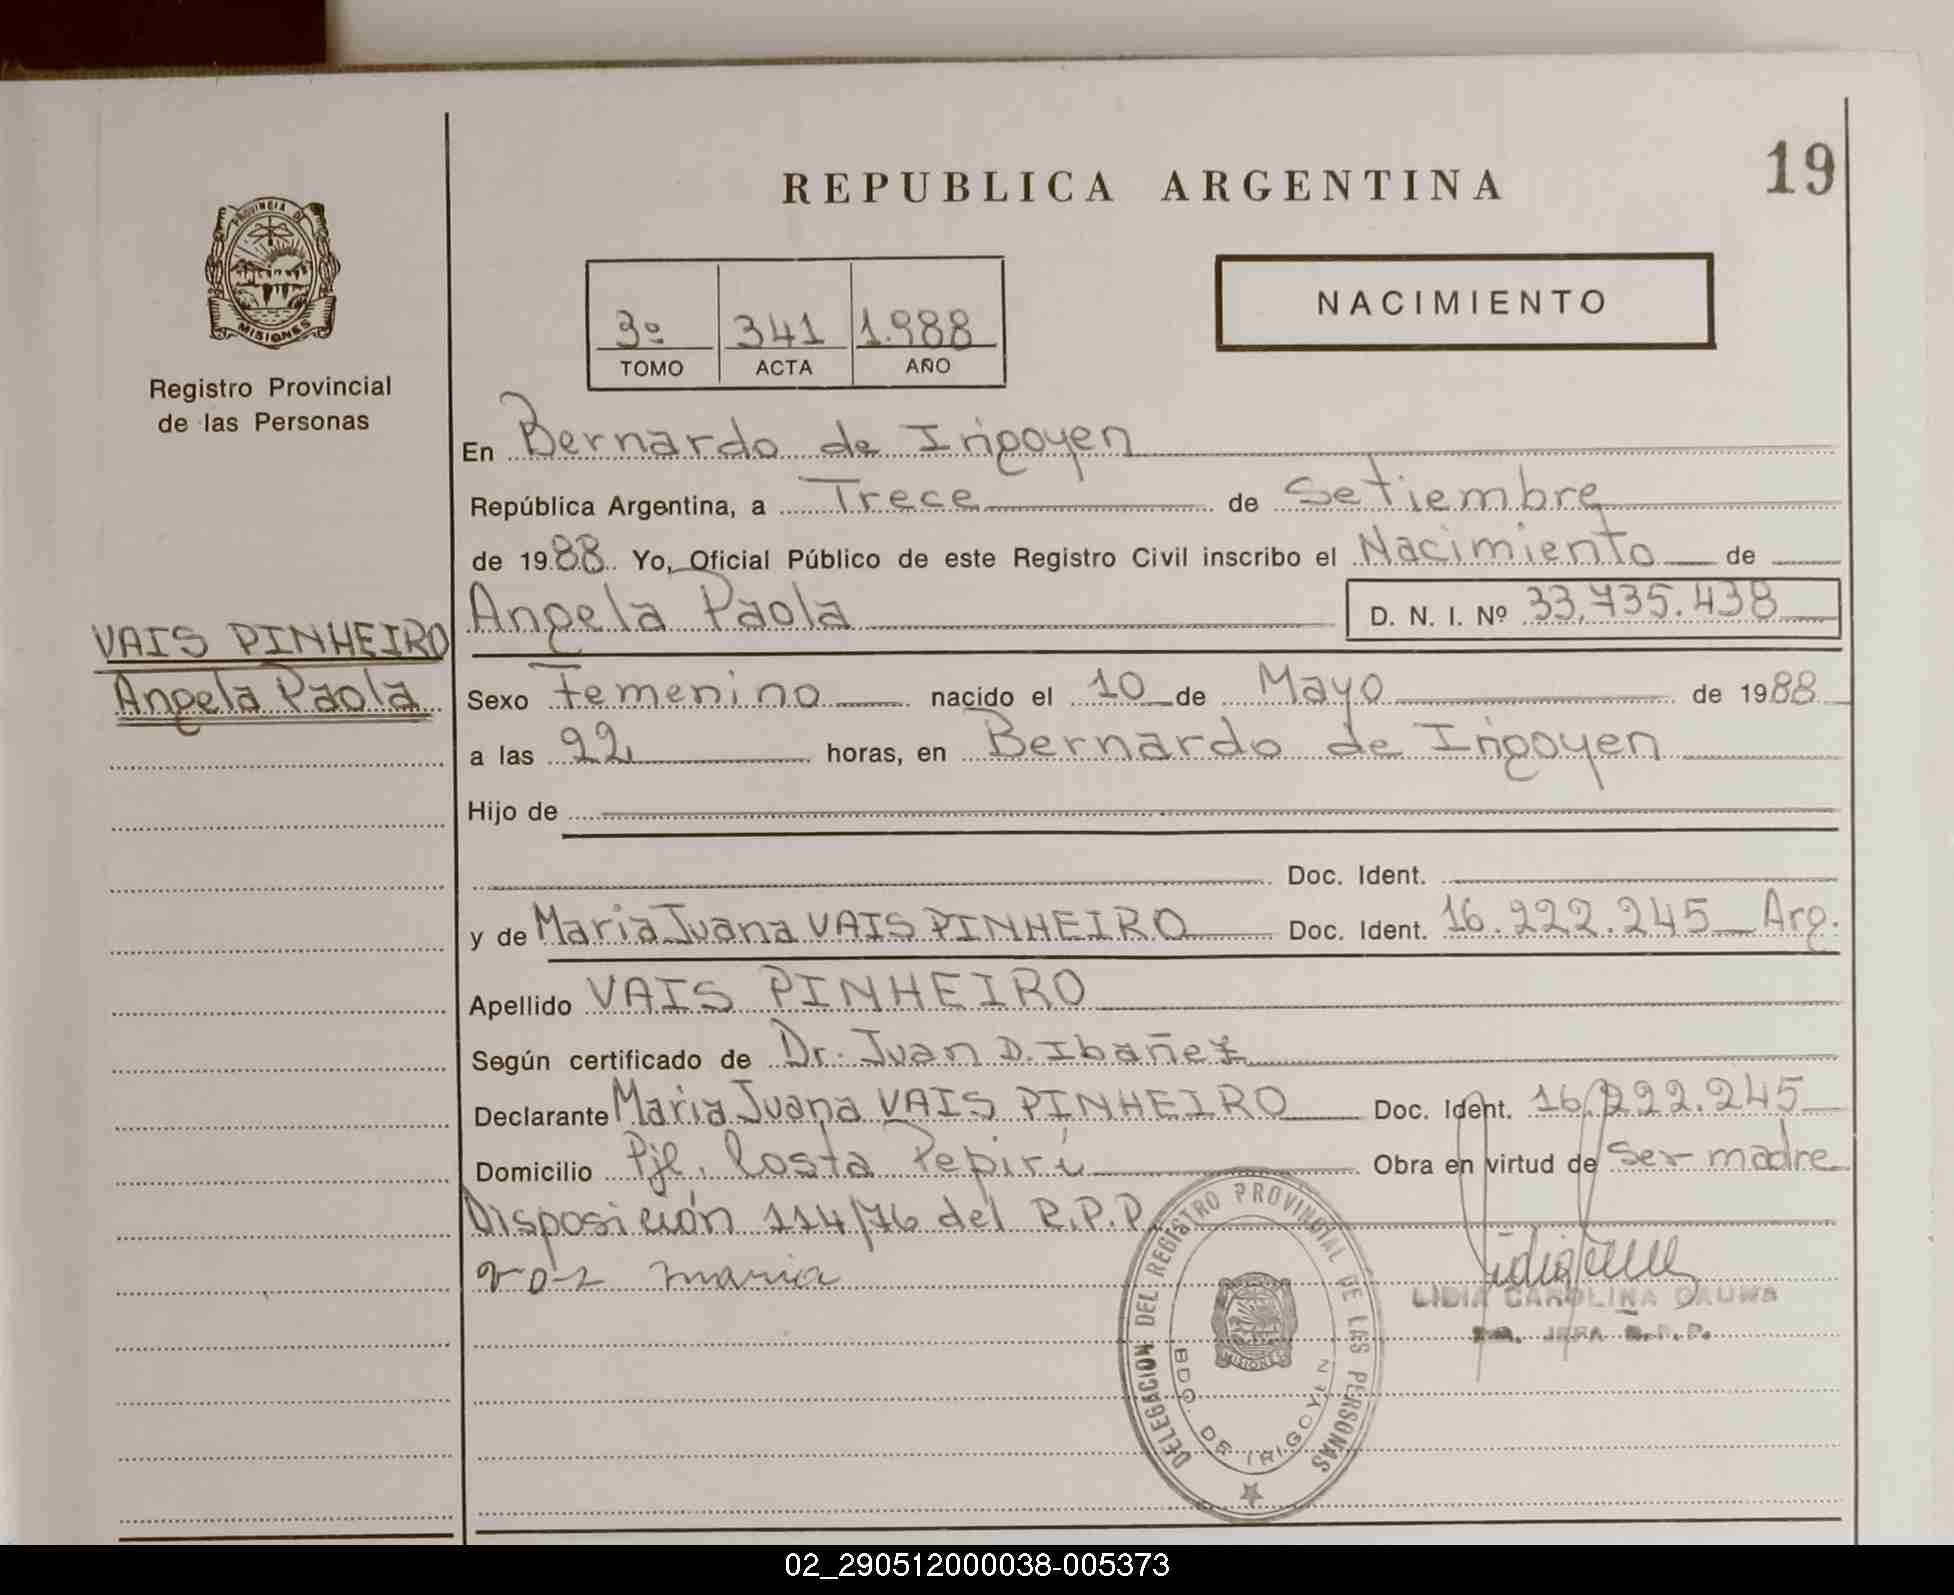 19
REPUBLICA ARGENTINA
PROVINCIA DE
MISIONES
Registro Provincial
de las Personas
NACIMIENTO
3º 341 1.988
TOMO ACTA AÑO
En Bernardo de Irigoyen
República Argentina, a Trece de Setiembre
de 1988. Yo, Oficial Público de este Registro Civil inscribo el Nacimiento de
Angela Paola D. N. I. Nº 33.735.438
VAIS PINHEIRO
Angela Paola
Sexo Femenino nacido el 10 de Mayo de 1988
a las 22 horas, en Bernardo de Irigoyen
Hijo de
Doc. Ident.
y de Maria Juana VAIS PINHEIRO Doc. Ident. 16.222.245 Arg.
Apellido VAIS PINHEIRO
Según certificado de Dr. Juan D. Ibañez
Declarante Maria Juana VAIS PINHEIRO Doc. Ident. 16.222.245
Domicilio Pje. Costa Pepirí Obra en virtud de ser madre
Disposición 114/76 del R.P.P.
maria
LIDIA CAROLINA
JEFA R.P.P.
DELEGACION DEL REGISTRO PROVINCIAL DE LAS PERSONAS
BDO. DE IRIGOYEN
MISIONES
02_290512000038-005373